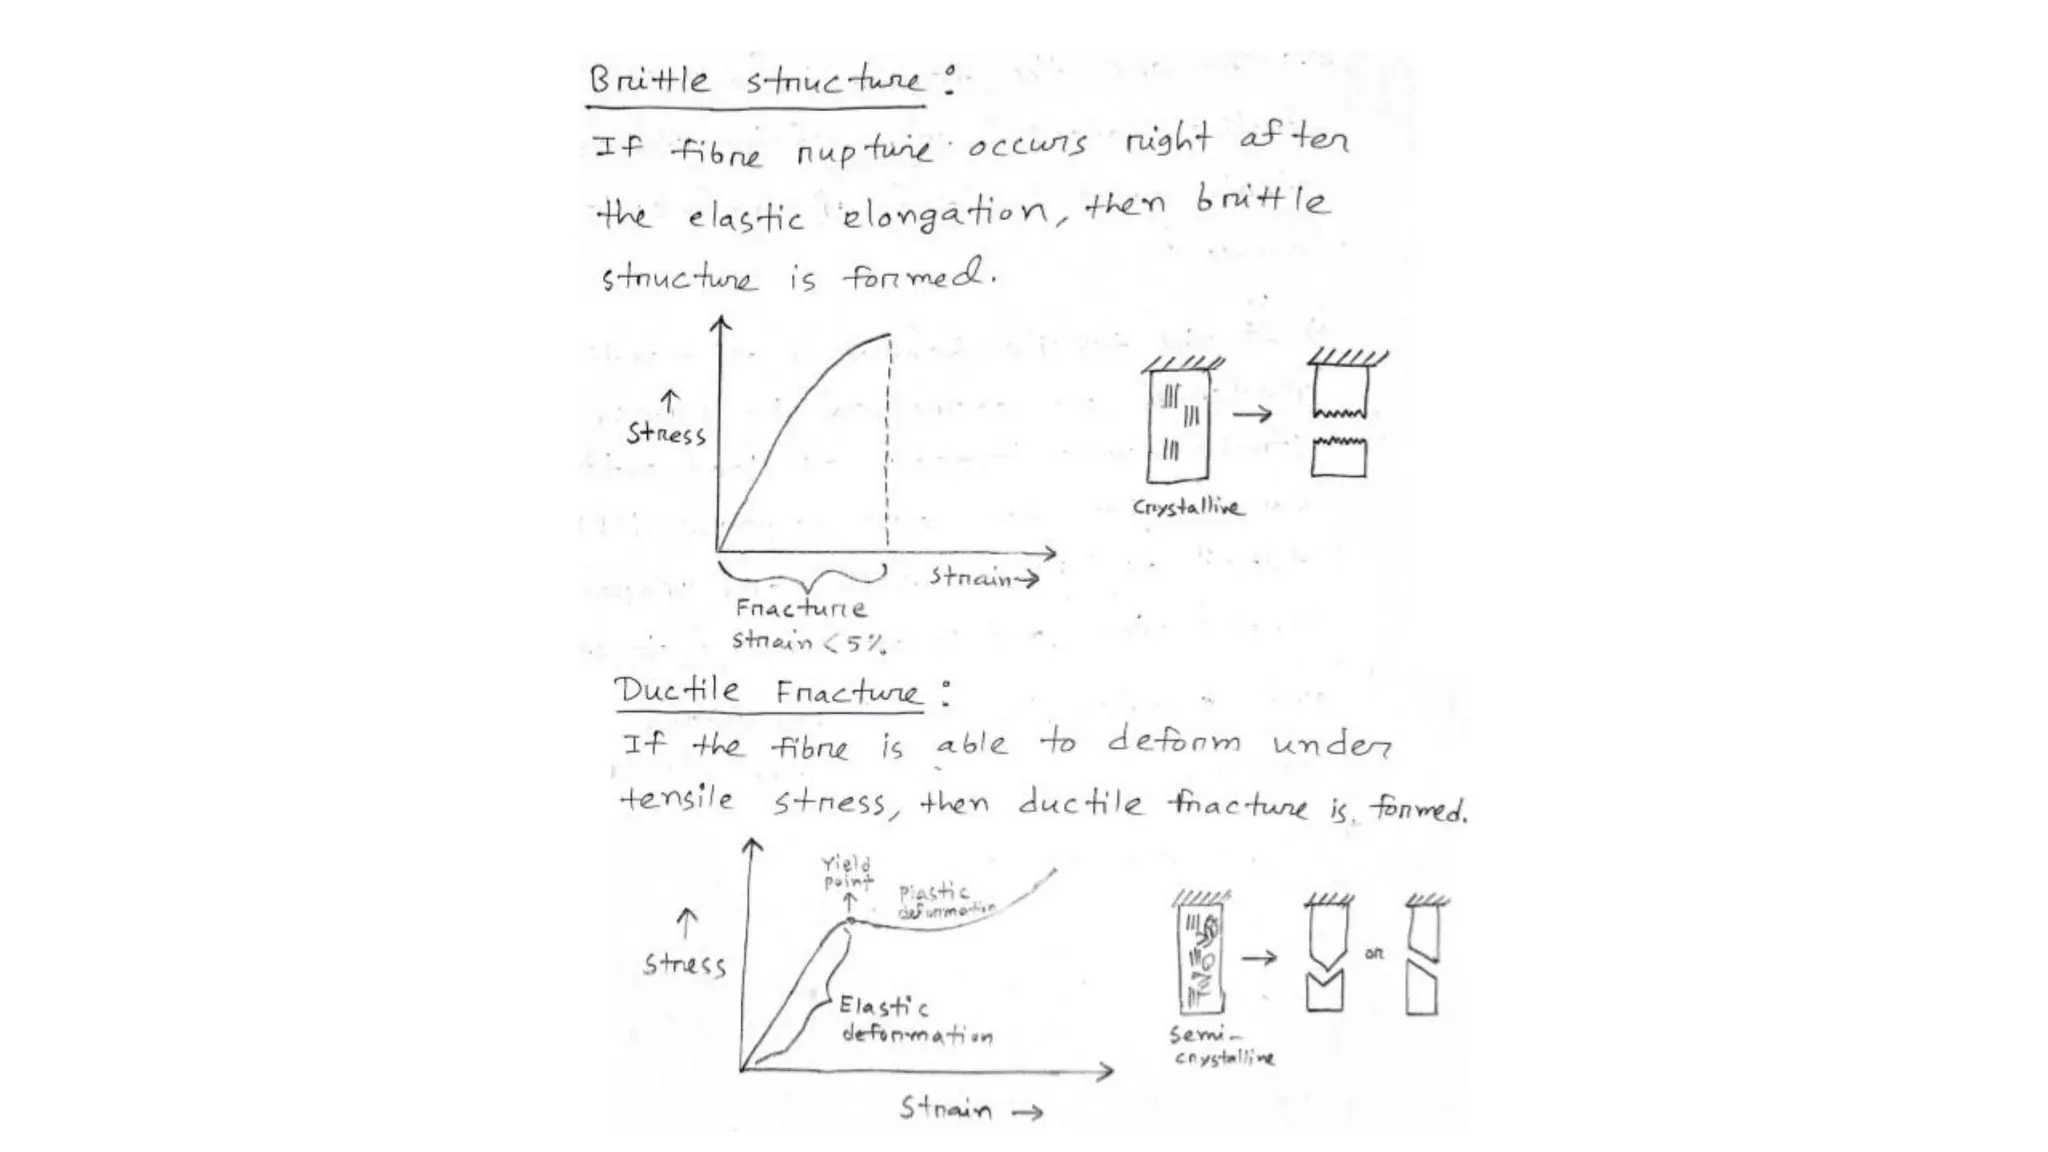 Brittle structure:
If fibre rupture occurs right after
the elastic elongation, then brittle
structure is formed.
↑
Stress
Crystalline
Strain→
Fracture
strain < 5%
Ductile Fracture:
If the fibre is able to deform under
tensile stress, then ductile fracture is formed.
Yield
point
↑
Plastic
deformation
↑
Stress
or
Elastic
deformation
Semi-
crystalline
Strain →